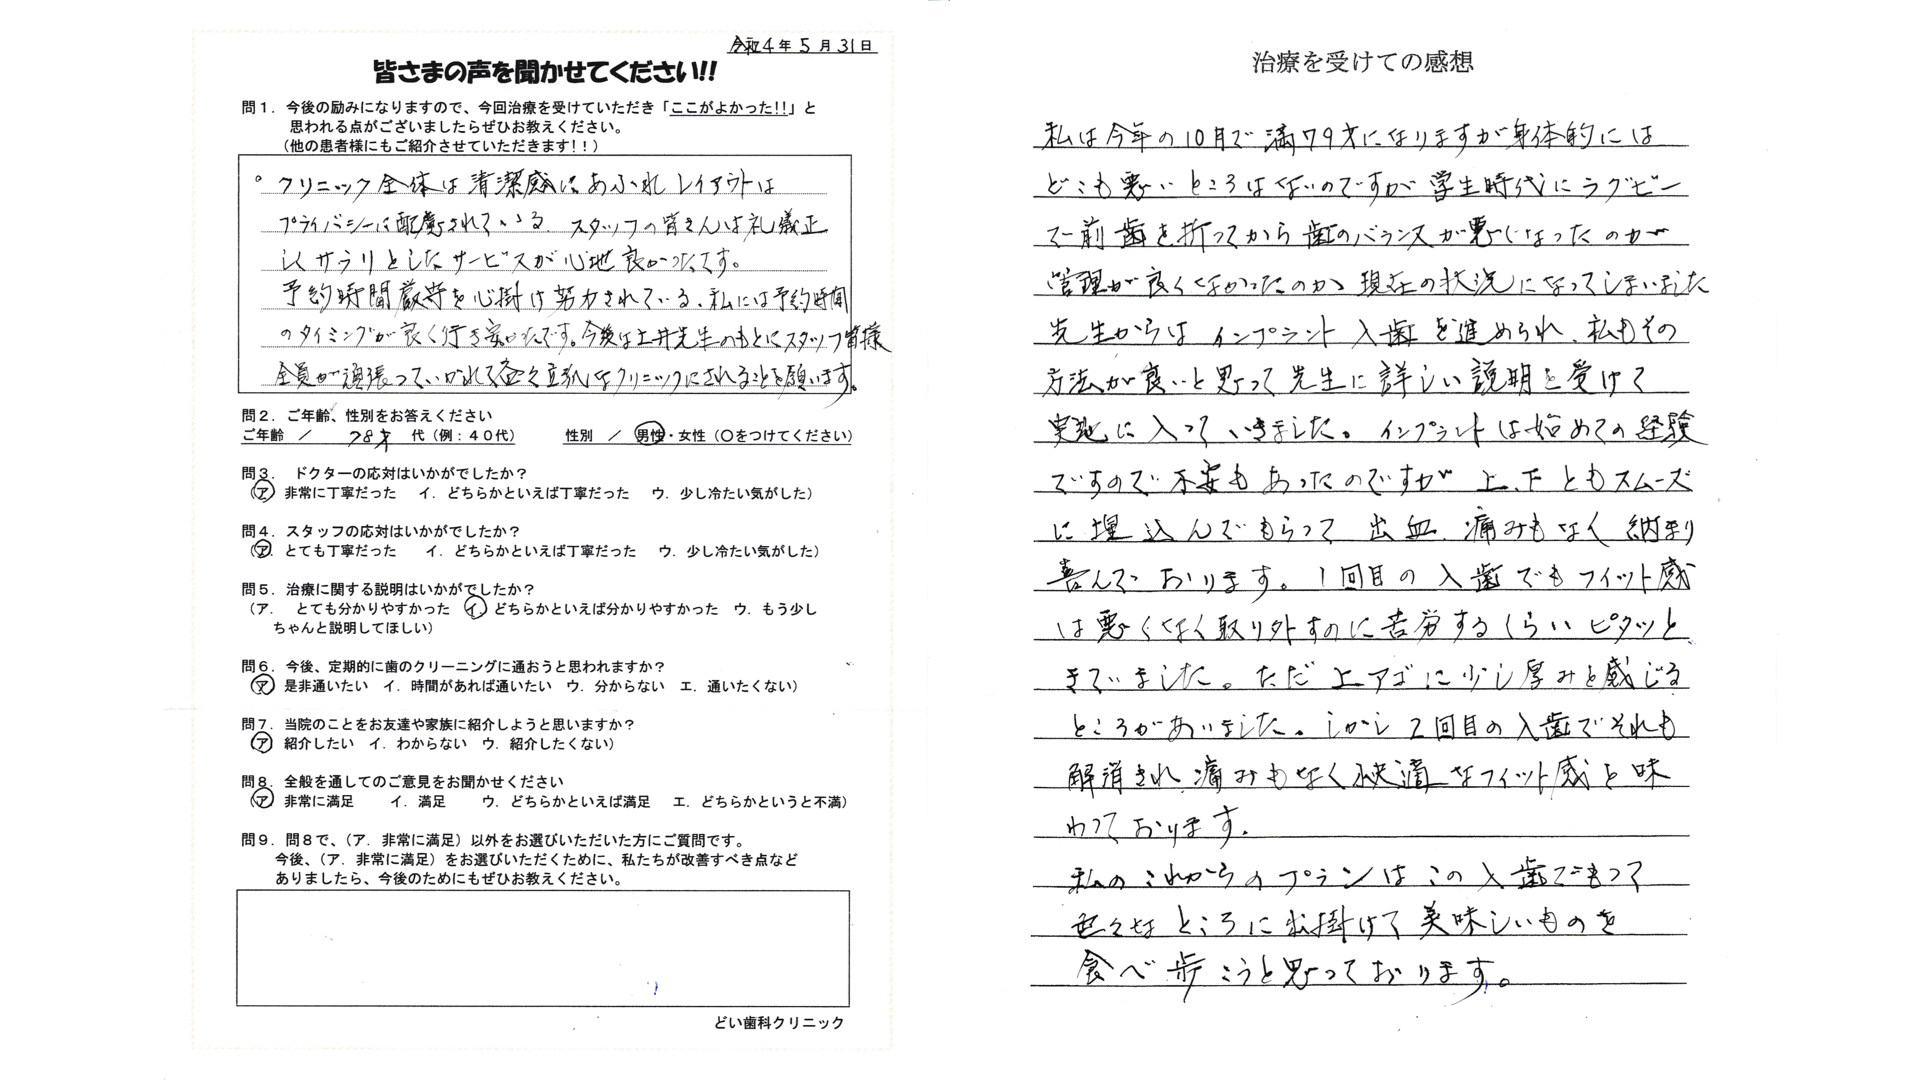 令和4年5月31日
皆さまの声を聞かせてください!!
問1．今後の励みになりますので、今回治療を受けていただき「ここがよかった!!」と
思われる点がございましたらぜひお教えください。
（他の患者様にもご紹介させていただきます！！）
。クリニック全体は清潔感にあふれレイアウトは
プライバシーに配慮されている。スタッフの皆さんは礼儀正
しくサラリとしたサービスが心地良かったです。
予約時間厳守を心掛け努力されている、私には予約時間
のタイミングが良く行き易かったです。今後は土井先生のもとにスタッフ皆様
全員が頑張っていかれて益々立派なクリニックにされることを願います。
問2．ご年齢、性別をお答えください
ご年齢 ／ 78才 代（例：40代） 性別 ／ 男性・女性（〇をつけてください）
問3． ドクターの応対はいかがでしたか？
（ア． 非常に丁寧だった イ．どちらかといえば丁寧だった ウ．少し冷たい気がした）
問4．スタッフの応対はいかがでしたか？
（ア．とても丁寧だった イ．どちらかといえば丁寧だった ウ．少し冷たい気がした）
問5．治療に関する説明はいかがでしたか？
（ア． とても分かりやすかった イ．どちらかといえば分かりやすかった ウ．もう少し
ちゃんと説明してほしい）
問6．今後、定期的に歯のクリーニングに通おうと思われますか？
（ア．是非通いたい イ．時間があれば通いたい ウ．分からない エ．通いたくない）
問7．当院のことをお友達や家族に紹介しようと思いますか？
（ア．紹介したい イ．わからない ウ．紹介したくない）
問8．全般を通してのご意見をお聞かせください
（ア．非常に満足 イ．満足 ウ．どちらかといえば満足 エ．どちらかというと不満）
問9．問8で、（ア．非常に満足）以外をお選びいただいた方にご質問です。
今後、（ア．非常に満足）をお選びいただくために、私たちが改善すべき点など
ありましたら、今後のためにもぜひお教えください。
どい歯科クリニック
治療を受けての感想
私は今年の10月で満79才になりますが身体的には
どこも悪いところはないのですが学生時代にラグビー
で前歯を折ってから歯のバランスが悪くなったのか
管理が良くなかったのか現在の状況になってしまいました
先生からはインプラント入歯を進められ、私もその
方法が良いと思って先生に詳しい説明を受けて
実施に入っていきました。インプラントは始めての経験
ですので不安もあったのですが上、下ともスムーズ
に埋込んでもらって出血、痛みもなく納まり
喜んでおります。1回目の入歯でもフィット感
は悪くなく取り外すのに苦労するくらいピタッと
きていました。ただ上アゴに少し厚みを感じる
ところがありました。しかし2回目の入歯でそれも
解消され痛みもなく快適なフィット感を味
わっております。
私のこれからのプランはこの入歯でもって
色々なところに出掛けて美味しいものを
食べ歩こうと思っております。